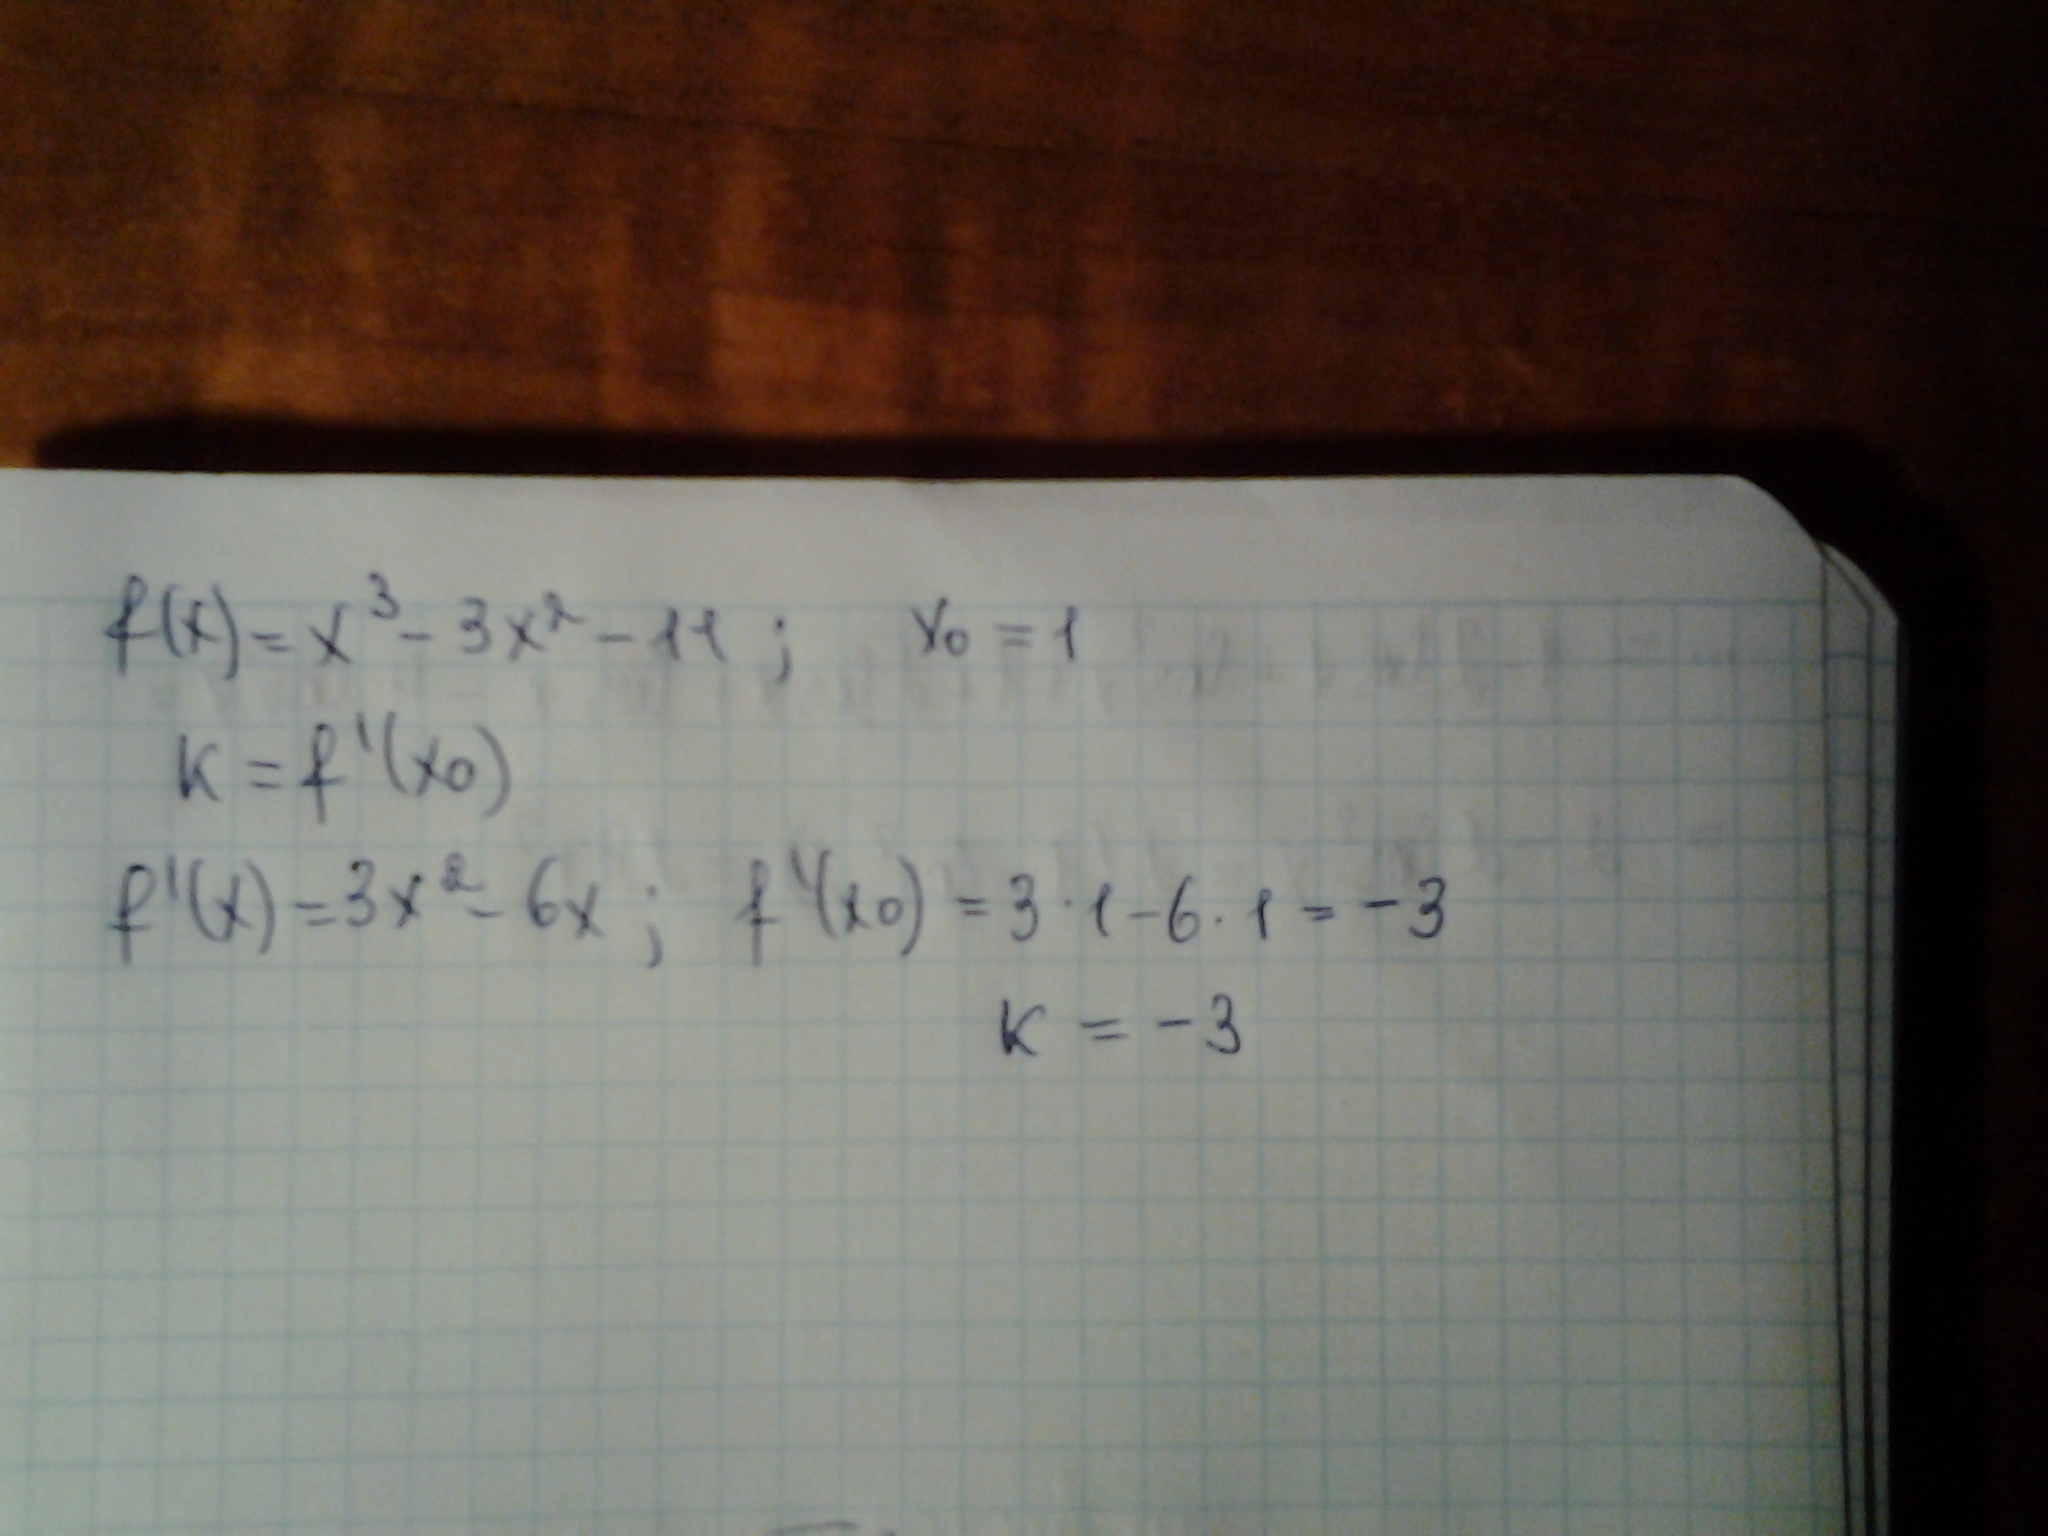 f(x) = x³ - 3x² - 11 ; x₀ = 1
k = f'(x₀)
f'(x) = 3x² - 6x ; f'(x₀) = 3 · 1 - 6 · 1 = -3
k = -3